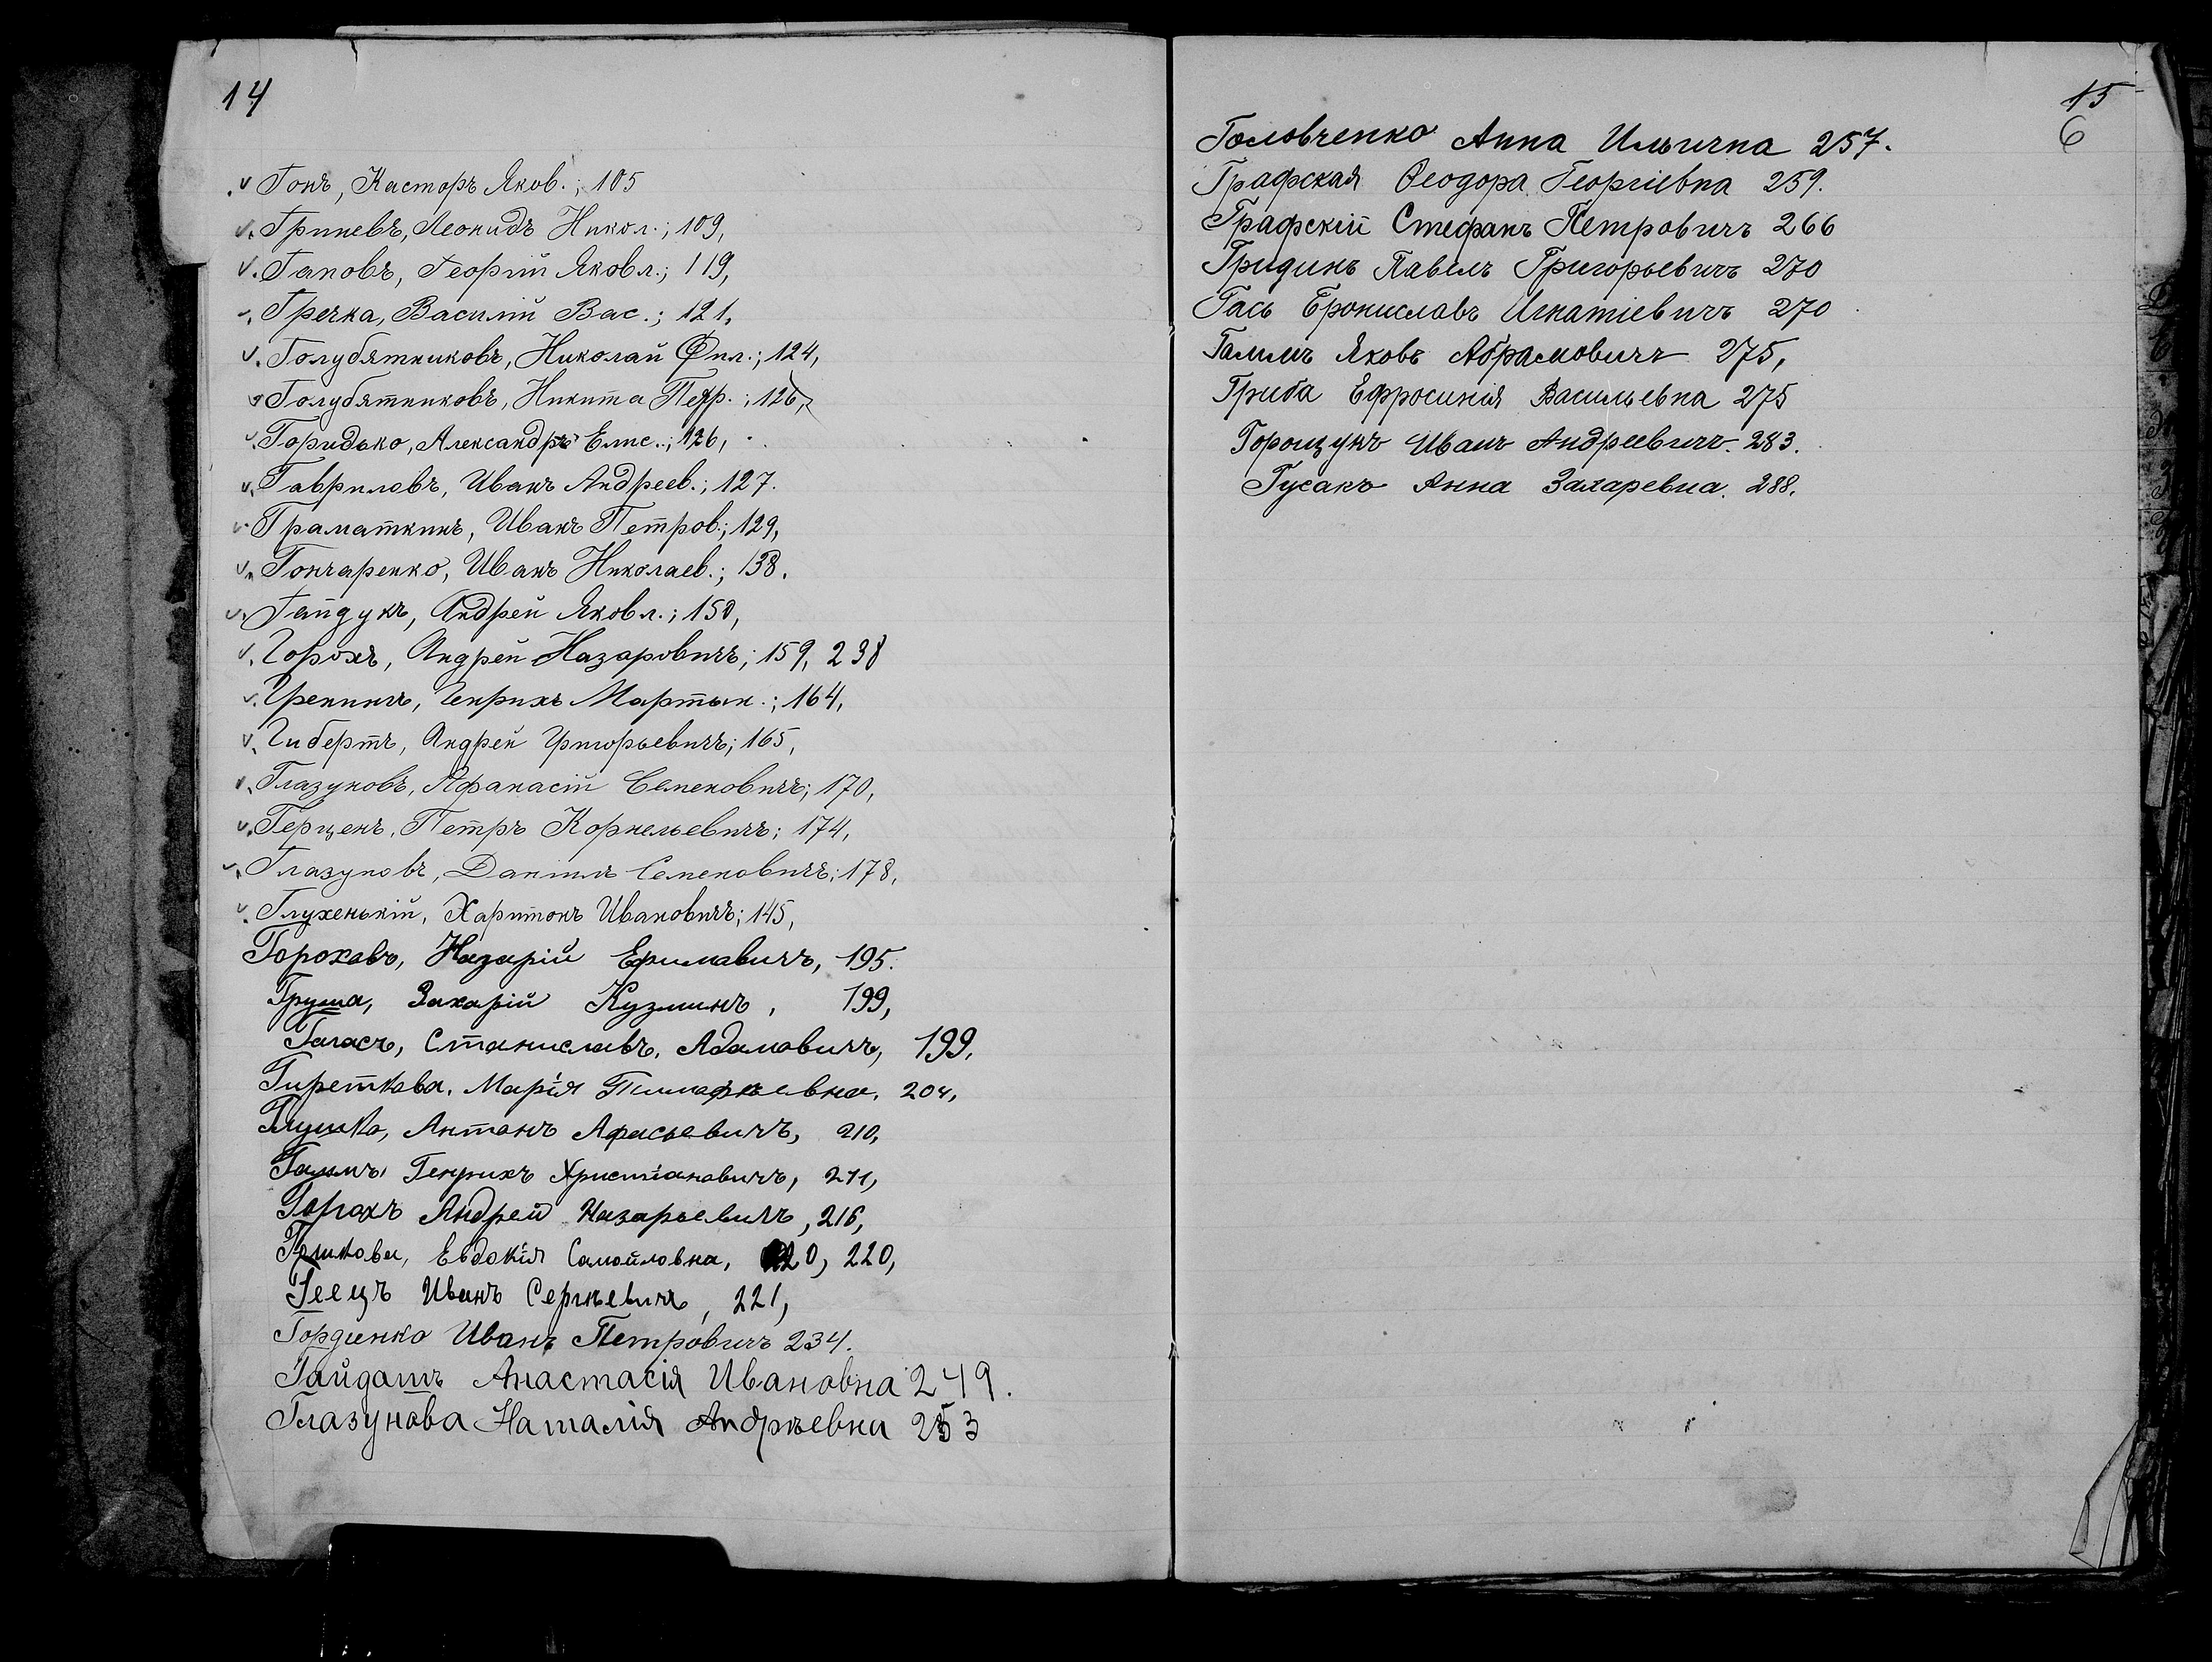 14
Гонъ, Касторъ Яков.; 105
Гриневъ, Леонидъ Никол.; 109,
Гаповъ, Георгій Яковл.; 119,
Гречка, Василій Вас.; 121,
Голубятниковъ, Николай Фил.; 124,
Голубятниковъ, Никита Петр.; 126,
Горидько, Александръ Елис.; 126,
Гавриловъ, Иванъ Андреев.; 127.
Граматкинъ, Иванъ Петров.; 129,
Гончаренко, Иванъ Николаев.; 138.
Гайдукъ, Андрей Яковл.; 150,
Горохъ, Андрей Назаровичъ; 159, 238
Гренингъ, Генрихъ Мартын.; 164,
Гибертъ, Андрей Григорьевичъ; 165,
Глазуновъ, Афанасій Семеновичъ; 170,
Герценъ, Петръ Корнельевичъ; 174,
Глазуновъ, Даніилъ Семеновичъ; 178,
Глухенькій, Харитонъ Ивановичъ; 145,
Гороховъ, Назарій 195.
Груша, Захарій Кузминъ, 199,
Галасъ, Станиславъ, Адамовичъ, 199,
Марія 204,
Глушко, Антонъ 210,
Генрихъ Христіановичъ, 211,
Горохъ Андрей Назарьевичъ, 216,
Евдокія Самойловна, 220, 220,
Геецъ Иванъ Сергѣевичъ, 221,
Гордиенко Иванъ Петровичъ 234.
Гайдашъ Анастасія Ивановна 249.
Глазунова Наталія Андрѣевна 253
15
6
Головченко Анна Ильична 257.
Графская Ѳеодора Георгіевна 259.
Графскій Стефанъ Петровичъ 266
Гридинъ Павелъ Григорьевичъ 270
Гась Брониславъ Игнатіевичъ 270
Яковъ Абрамовичъ 275,
Гриба Ефросинія Васильевна 275
Горощукъ Иванъ Андреевичъ 283.
Гусакъ Анна Захаревна. 288.